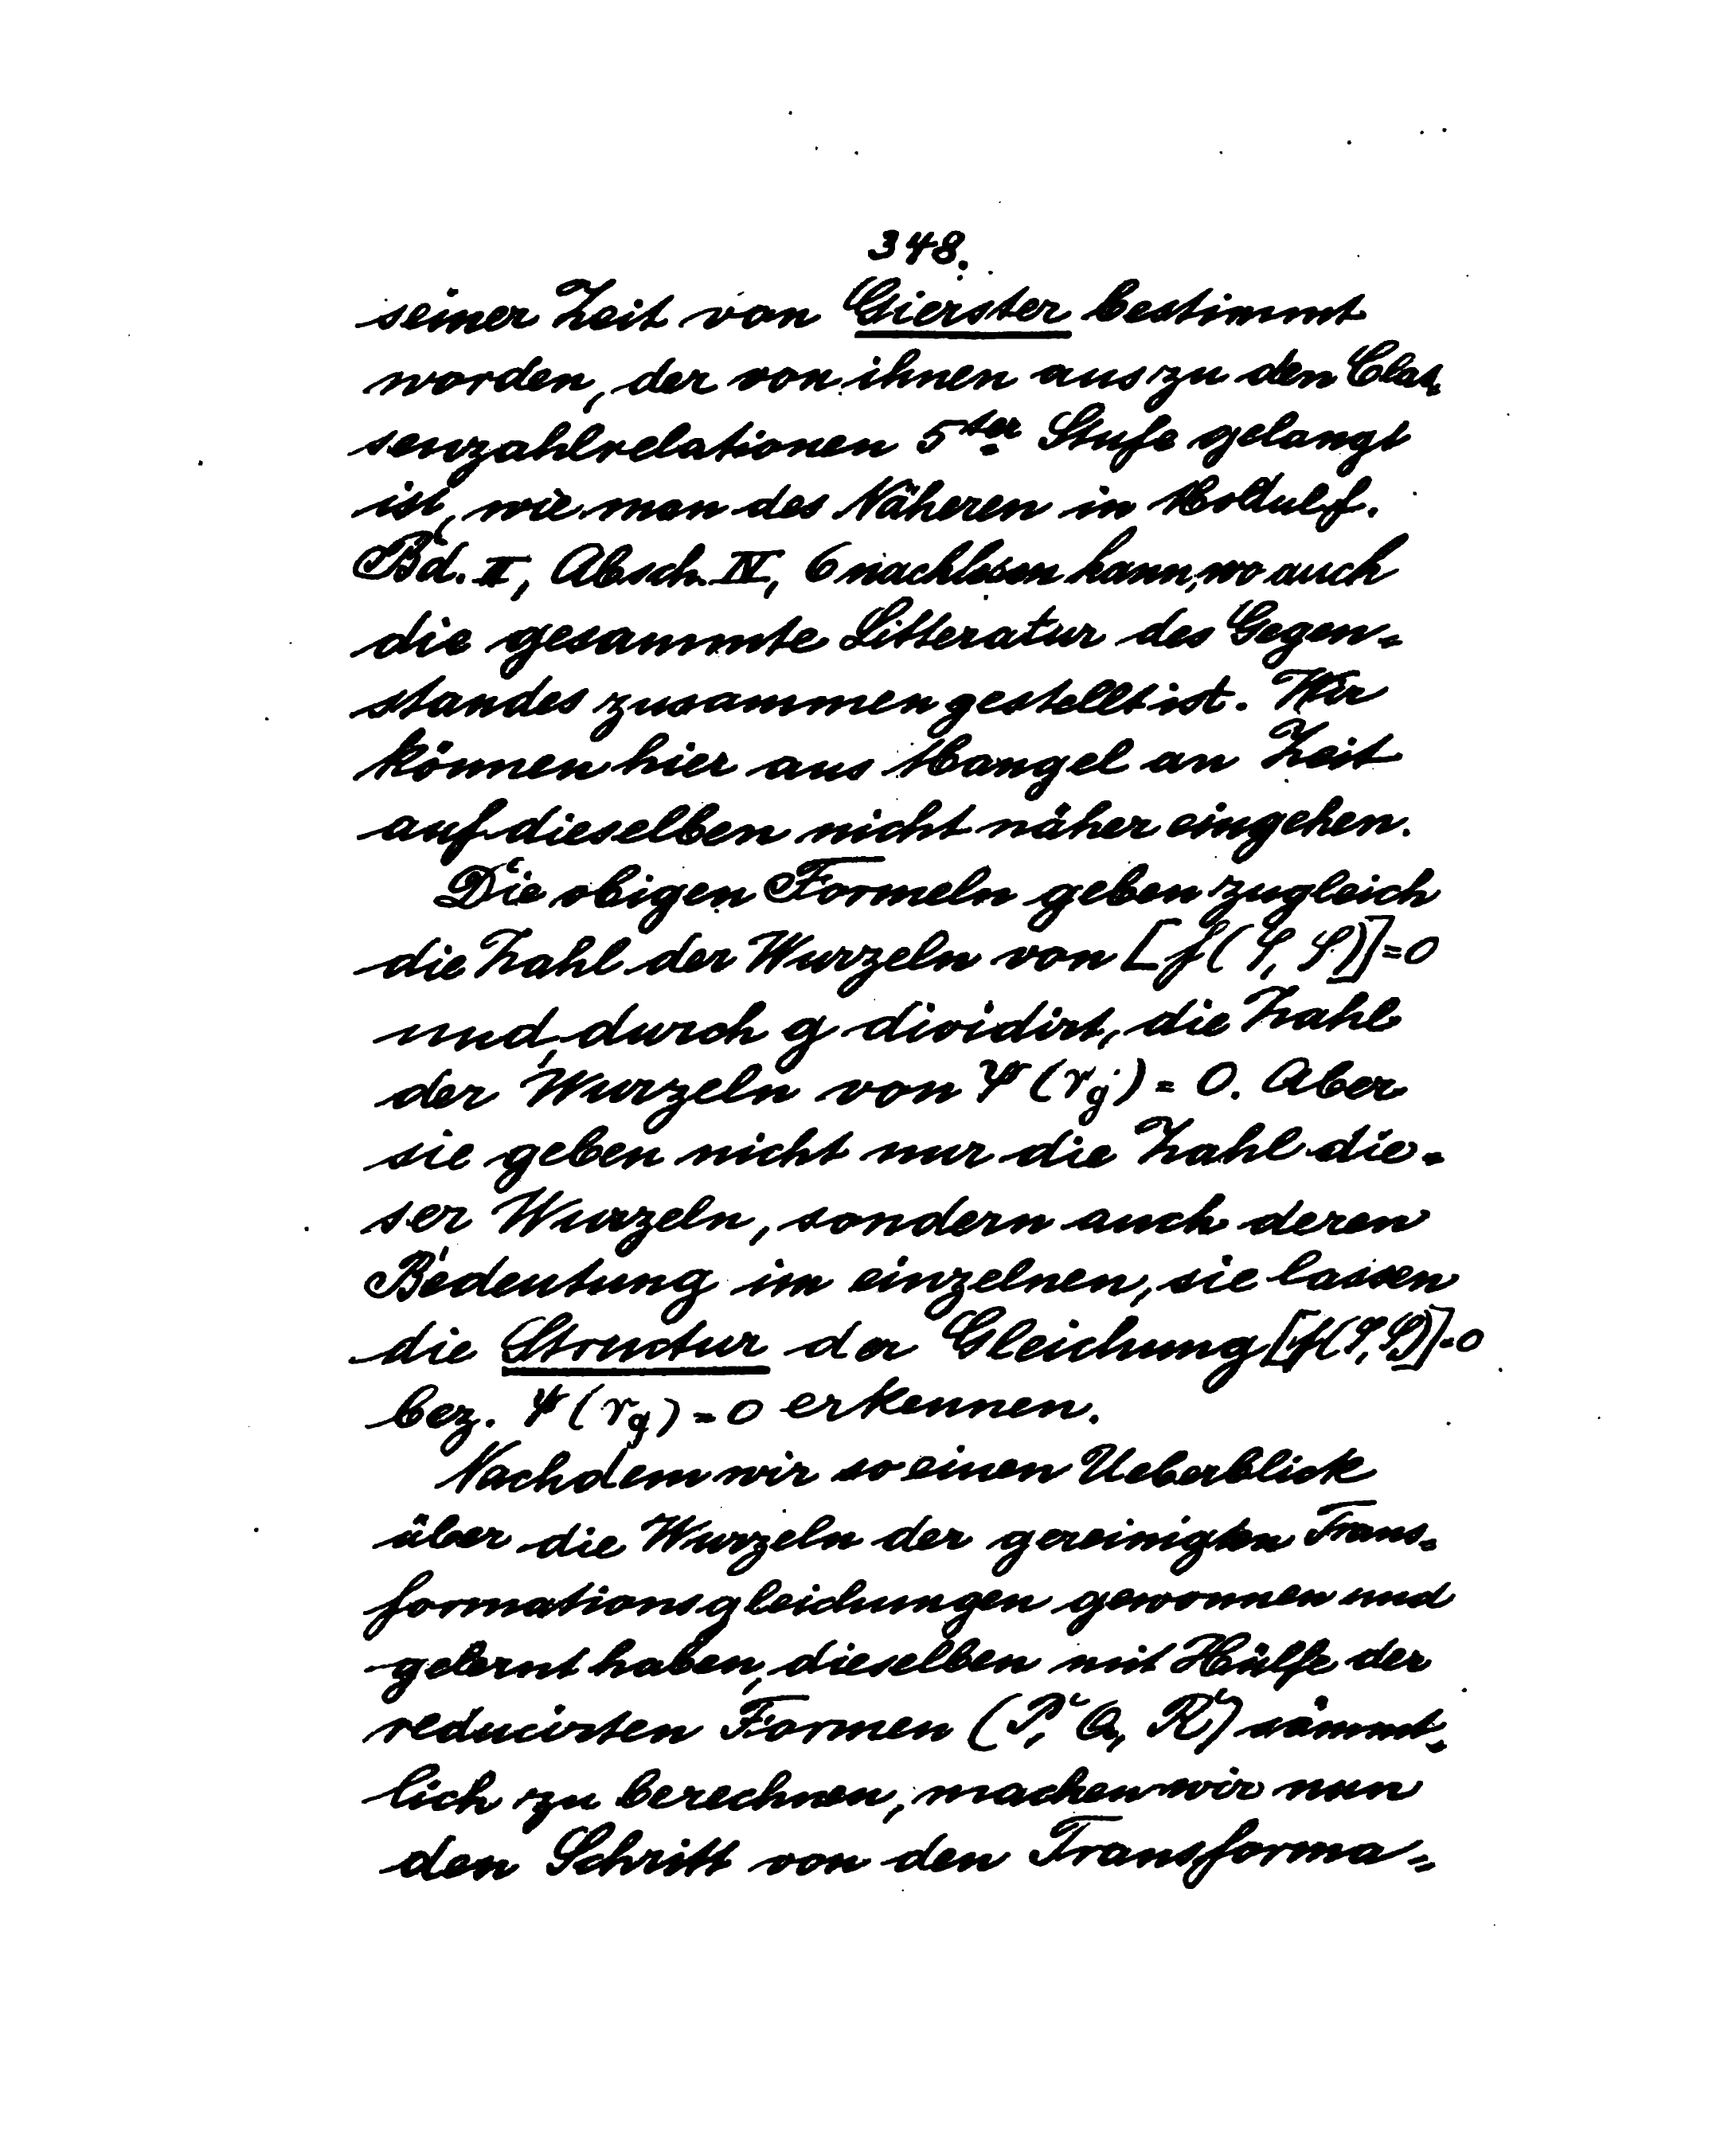 348.
seiner Zeit von Gierster bestimmt
worden, der von ihnen aus zu den Clas-
senzahlrelationen 5ter Stufe gelangt
ist, wie man des Näheren in Modulf.
Bd. II, Absch. IV, 6 nachlesen kann, wo auch
die gesammte Litteratur des Gegen-
standes zusammengestellt ist. Wir
können hier aus Mangel an Zeit
auf dieselben nicht näher eingehen.
Die obigen Formeln geben zugleich
die Zahl der Wurzeln von [f(φ, φ)]=0
und, durch g dividirt, die Zahl
der Wurzeln von ψ(r_g) = 0. Aber
sie geben nicht nur die Zahl die-
ser Wurzeln, sondern auch deren
Bedeutung im einzelnen, sie lassen
die Structur der Gleichung [f(φ,φ)]=0
bez. ψ(r_g)=0 erkennen.
Nachdem wir so einen Ueberblick
über die Wurzeln der gereinigten Trans-
formationsgleichungen gewonnen und
gelernt haben, dieselben mit Hülfe der
reducirten Formen (P, Q, R) sämmt-
lich zu berechnen, machen wir nun
den Schritt von den Transforma-